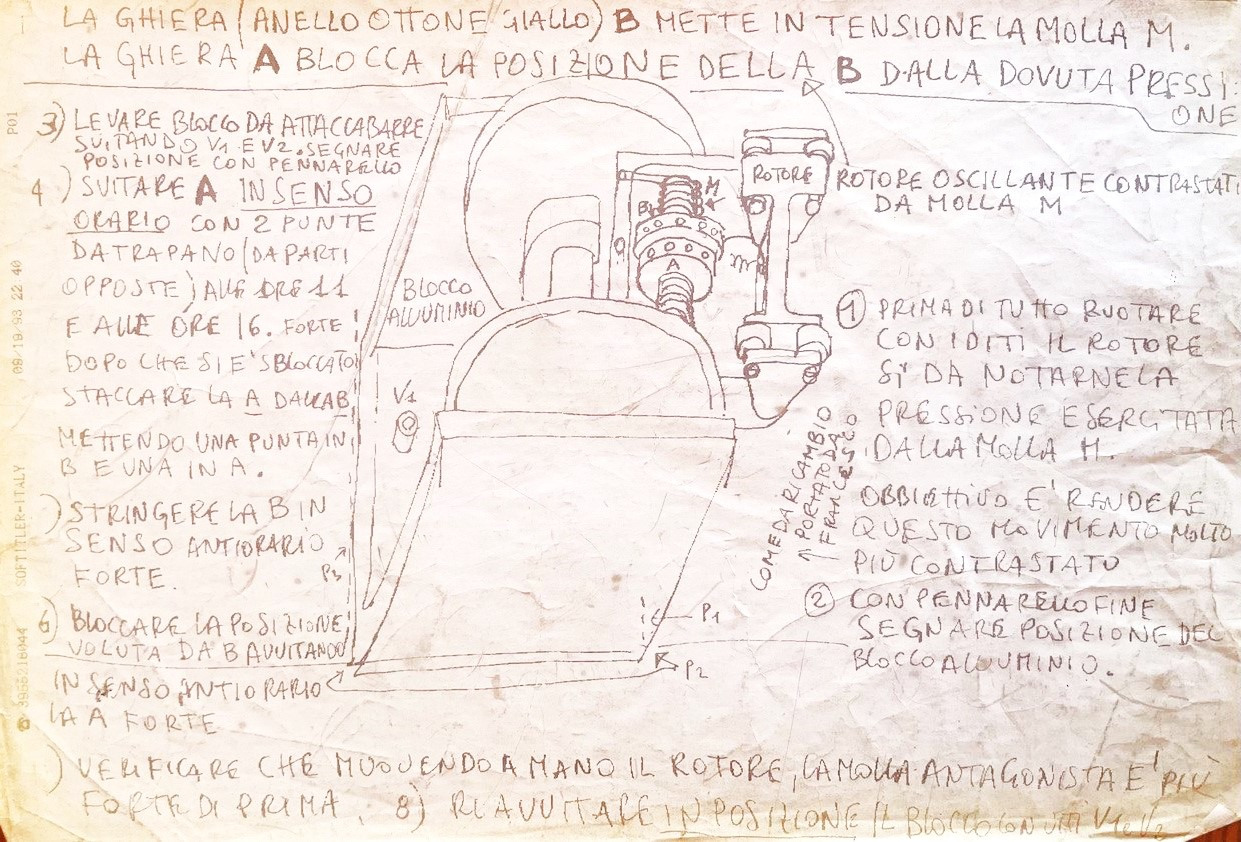 LA GHIERA (ANELLO OTTONE GIALLO) B METTE IN TENSIONE LA MOLLA M.
LA GHIERA A BLOCCA LA POSIZIONE DELLA B DALLA DOVUTA PRESSI-
ONE
3) LEVARE BLOCCO DA ATTACCABARRE
SVITANDO V1 E V2. SEGNARE
POSIZIONE CON PENNARELLO
4) SVITARE A IN SENSO
ORARIO CON 2 PUNTE
DA TRAPANO (DA PARTI
OPPOSTE) ALLE ORE 11
E ALLE ORE 16. FORTE
DOPO CHE SI E' SBLOCCATO
STACCARE LA A DALLA B
METTENDO UNA PUNTA IN
B E UNA IN A.
) STRINGERE LA B IN
SENSO ANTIORARIO
FORTE.
6) BLOCCARE LA POSIZIONE
VOLUTA DA B AVVITANDO
IN SENSO ANTIORARIO
LA A FORTE
BLOCCO
ALLUMINIO
V1
P3
M
B
A
m
ROTORE
P1
P2
COME DA RICAMBIO
PORTATO DA
FRANCESCO
ROTORE OSCILLANTE CONTRASTAT
DA MOLLA M
1 PRIMA DI TUTTO RUOTARE
CON I DITI IL ROTORE
SI' DA NOTARNE LA
PRESSIONE ESERCITATA
DALLA MOLLA M.
OBBIETTIVO E' RENDERE
QUESTO MOVIMENTO MOLTO
PIÙ CONTRASTATO
2 CON PENNARELLO FINE
SEGNARE POSIZIONE DEL
BLOCCO ALLUMINIO.
) VERIFICARE CHE MUOVENDO A MANO IL ROTORE, LA MOLLA ANTAGONISTA E' PIÙ
FORTE DI PRIMA. 8) RIAVVITARE IN POSIZIONE IL BLOCCO CON VITI V1 e V2
P01
09/10/93 22:40
SOFTITLER-ITALY